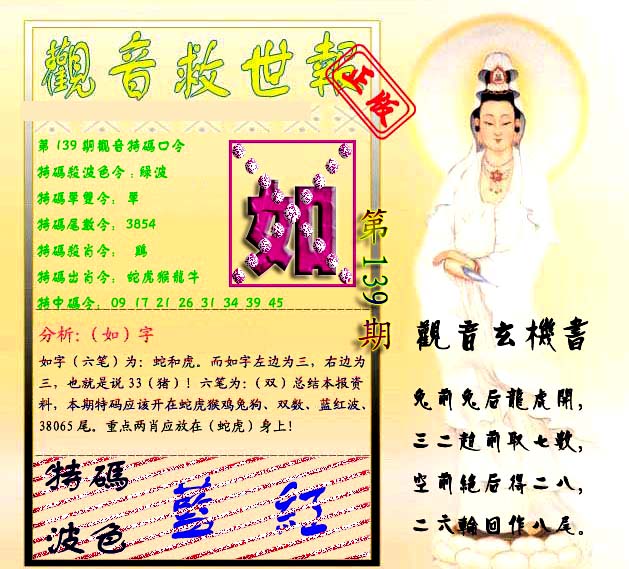 觀音救世報
正版
第139期觀音特碼口令
特碼殺波色令：綠波
特碼單雙令： 單
特碼尾數令： 3854
特碼殺肖令： 鷄
特碼出肖令： 蛇虎猴龍牛
特中碼令： 09 17 21 26 31 34 39 45
如
第139期
分析：（如）字
如字（六笔）为：蛇和虎。而如字左边为三，右边为
三，也就是说 33（猪）！六笔为：（双）总结本报资
料，本期特码应该开在蛇虎猴鸡兔狗、双数、蓝红波、
38065 尾。重点两肖应放在（蛇虎）身上！
特碼
波色
藍 紅
觀音玄機書
兔前兔后龍虎開，
三二趕前取七數，
空前絕后得二八，
二六輪回作八尾。